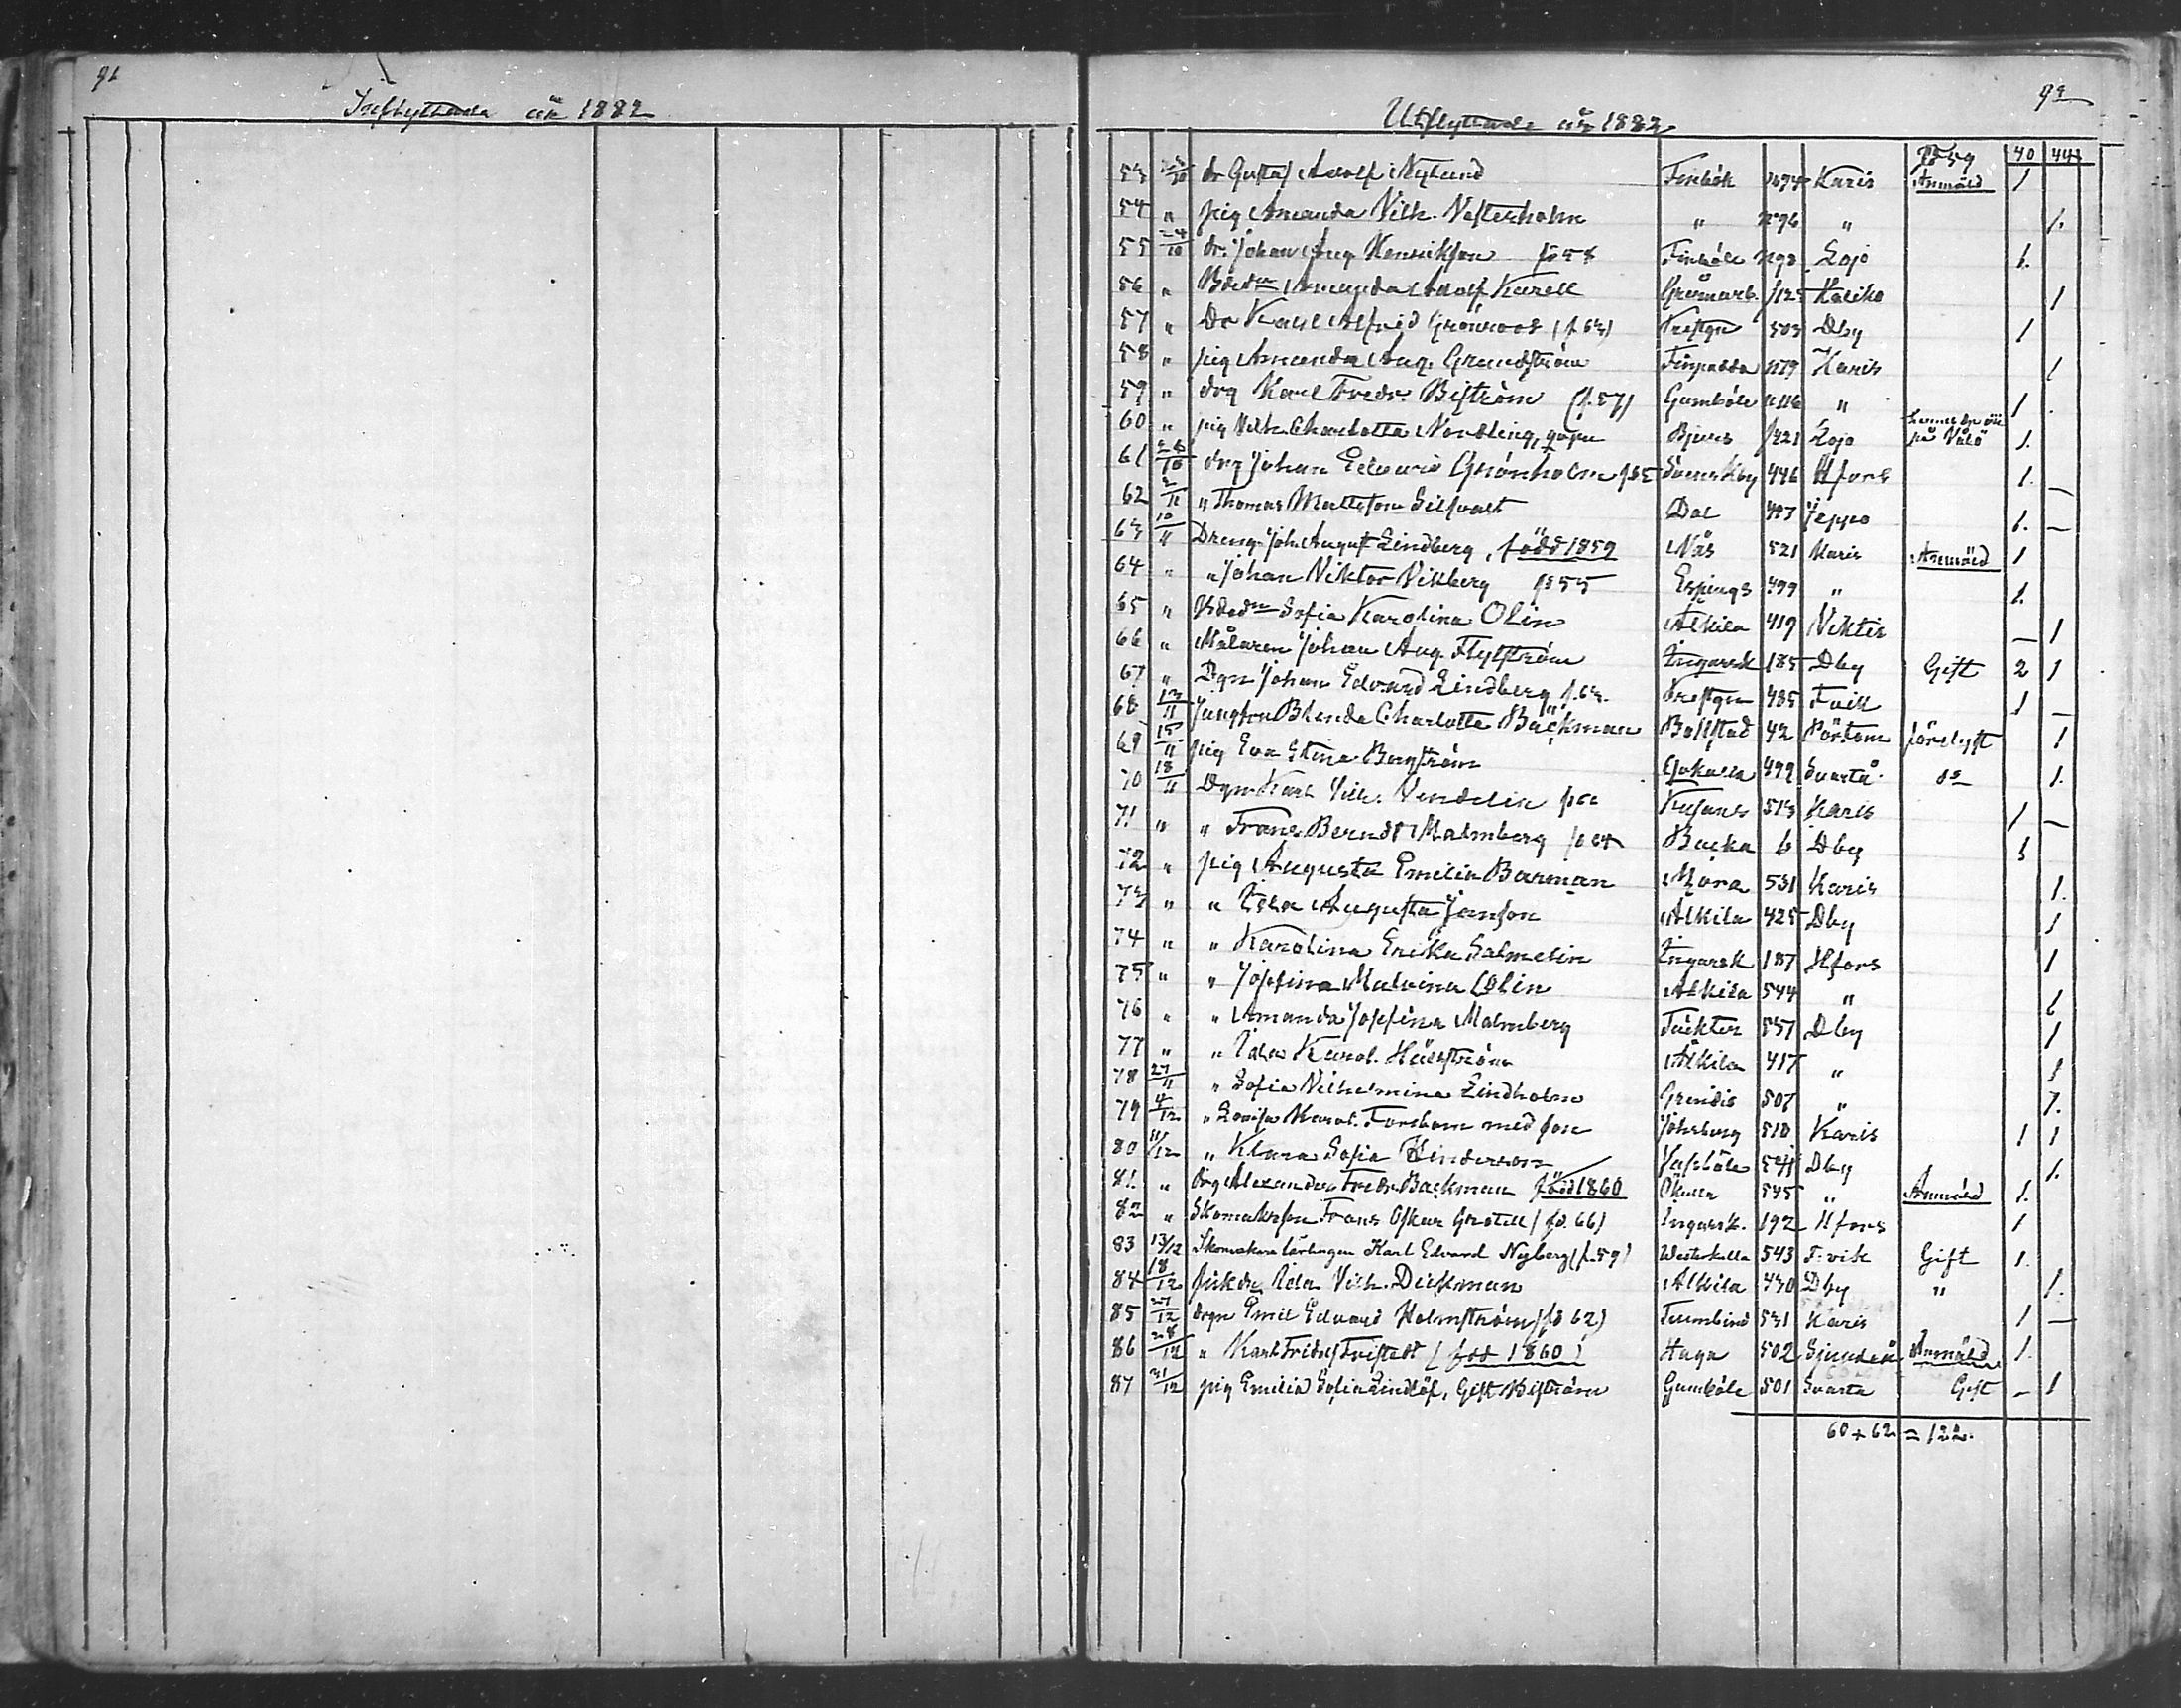 92
Inflyttade år 1882
Utflyttade år 1882
fö 59 40 44
53 /10 dr Gustaf Adolf Nylund Finbök Karis Anmäld 1
54 " pig Amanda Vilh. Vesterholm " " 1.
55 24/10 dr. Johan Aug Henrikson Lojo 1.
56 " Amanda Adolf. Karell Kaliko 1
57 " Dr Karl Alfrid Grönroos (f. 63) Prestgn 503 Dby 1
58 " pig Amanda Aug. Grundström Karis 1
59 " drg Karl Fredr. Biström (f. 57) Gumböle " 1
60 " pig Vilh. Charlotta Nordling, Bjers Lojo på Vålö 1.
61 26/10 drg Johan Edvard Grönholm 446 Hfors 1.
62 2/11 " Thomas Mattsson Silfvast Dal 497 Jeppo 1. –
63 10/11 Dreng. Joh. August Lindberg, född 1859 Näs 521 Karis Anmäld 1
64 " " Johan Viktor Vikberg fö 55 Espings 499 " 1.
65 " Sofia Karolina Olin Alkila 419 Viktis – 1
66 " Målaren Johan Aug. Flytström Ingarsk 185 Dby Gift 2 1
67 " Dgn Johan Edvard Lindberg f. 63. Prestgn 485 Fvik 1 –
68 13/11 Jungfru Blenda Charlotta Bäckman Bollstad 42 Pörtom förelyft 1
69 15/11 pig Eva Stina Bergström 499 Svartå do 1.
70 18/11 Dgn Karl Vilh. Vendelin 513 Karis 1 –
71 " " Frans Berndt Malmberg fö 64 Backa 6 Dby 1
72 " pig Augusta Emilia Barman Mora 531 Karis 1.
73 " " Ida Augusta Janson Alkila 425 Dby 1
74 " " Karolina Erika Salmelin Ingarsk 187 Hfors 1
75 " " Josefina Malvina Olin Alkila 544 " 1
76 " " Amanda Josefina Malmberg Täckter 557 Dby 1
77 " " Ida Karol. Hällström Alkila 417 " 1
78 27/11 " Sofia Vilhelmina Lindholm 507 " 1.
79 4/12 " Lovisa Karol. Forsbom med son Johsberg 510 Karis 1 1
80 11/12 " Klara Sofia Hinderson Dby 1.
81. " Drg Alexander Fredr. Backman född 1860 545 " Anmäld 1.
82 " Skomakrsn Frans Oskar Grotell (fö. 66) Ingarsk. 192 Hfors 1
83 13/12 Skomakare lärlingen Karl Edvard Nyberg (f. 59) Westerkulla 543 F:vik Gift 1.
84 18/12 Ida Vilh. Dickman Alkila 430 Dby " 1.
85 27/12 drgn Emil Edvard Holmström (fö 62) 531 Karis 1 –
86 28/12 " Karl Fridolf Fristedt (född 1860) Haga 502 Sjundeå Anmäld 1.
87 31/12 pig Emilia Sofia Lindlöf, Gift Biström Gumböle 501 Svarta Gift – 1
60 + 62 = 122.